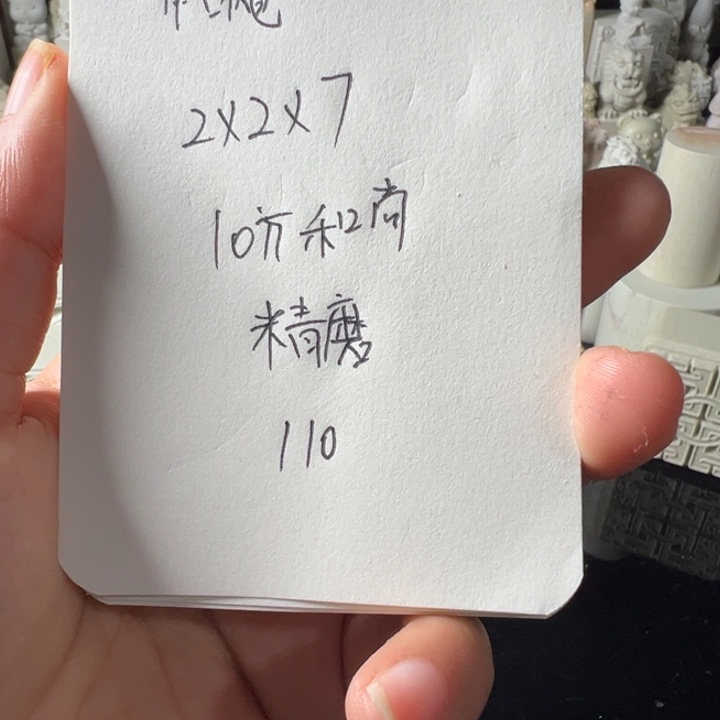 2×2×7
10方和尚
精磨
110